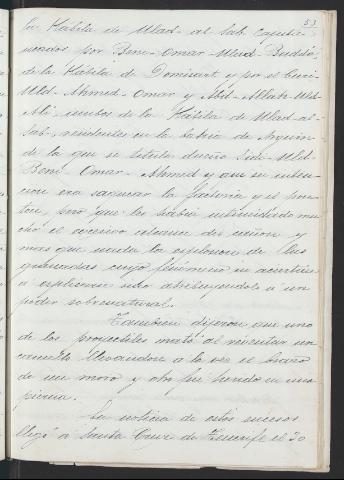 53
la Kabila de Ulad-al-Sab, capita-
neados por Beni-Omar-Ulad-Budda,
de la Kabila de Domisart y por el
Uld-Ahmed-Omar y Abd-Allah-Uld-
Ali, ambos de la Kabila de Ulad-al-
Sab, residentes en la bahia de Arguin
de la que se titula dueño Sidi-Uld-
Beni-Omar-Ahmed y que su inten-
cion era saquear la factoria y el pon-
ton, pero que les habia intimidado mu-
cho el excesivo alcance del cañon y
mas que nada la esplosion de las
granadas cuyo fenómeno no acertaban
a esplicarse sino atribuyendolo á un
poder sobrenatural.
Tambien dijeron que uno
de los proyectiles mató al reventar un
camello llevandose á la vez el brazo
de un moro y otro fué herido en una
pierna.
La noticia de estos sucesos
llegó á Santa Cruz de Tenerife el 30